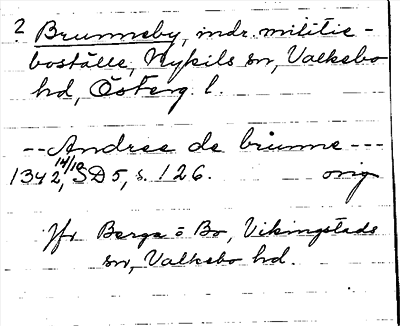 ? Brunneby, indr. militie-
boställe, Nykils sn, Valkebo
hd, Österg. l.
-- Andree de brunne ---
1342 14/10, SD 5, s. 126. orig
Jfr Berga o Bo, Vikingstads
sn, Valkebo hd.